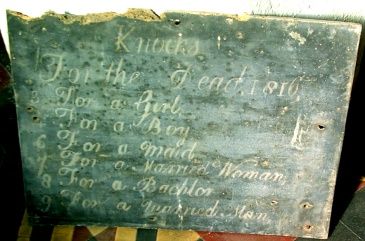 Knocks
For the Dead 1816
For a Girl
For a Boy
6 For a Maid
7 For a Married Woman
8 For a Bachlor
9 For a Married Man